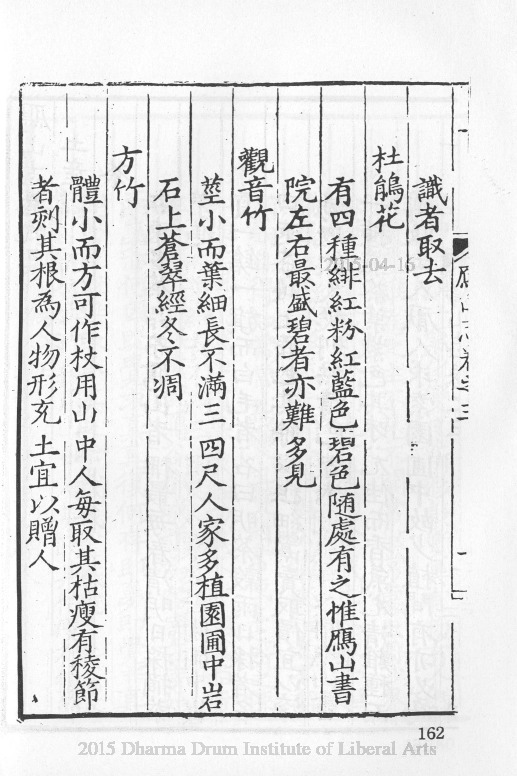 識者取去
杜鵑花
有四種緋紅粉紅藍色碧色随處有之惟鴈山書
院左右最盛碧者亦難多見
觀音竹
莖小而葉細長不滿三四尺人家多植園圃中岩
石上蒼翠經冬不凋
方竹
體小而方可作杖用山中人每取其枯瘦有稜節
者剜其根為人物形充土宜以贈人
162
2015 Dharma Drum Institute of Liberal Arts